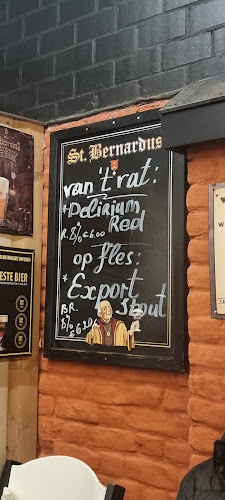 St. Bernardus
van 't rat:
* Delirium
Red
8.5% € 6.00
op fles:
* Export
Stout
BR.
8% € 6.20
ESTE BIER